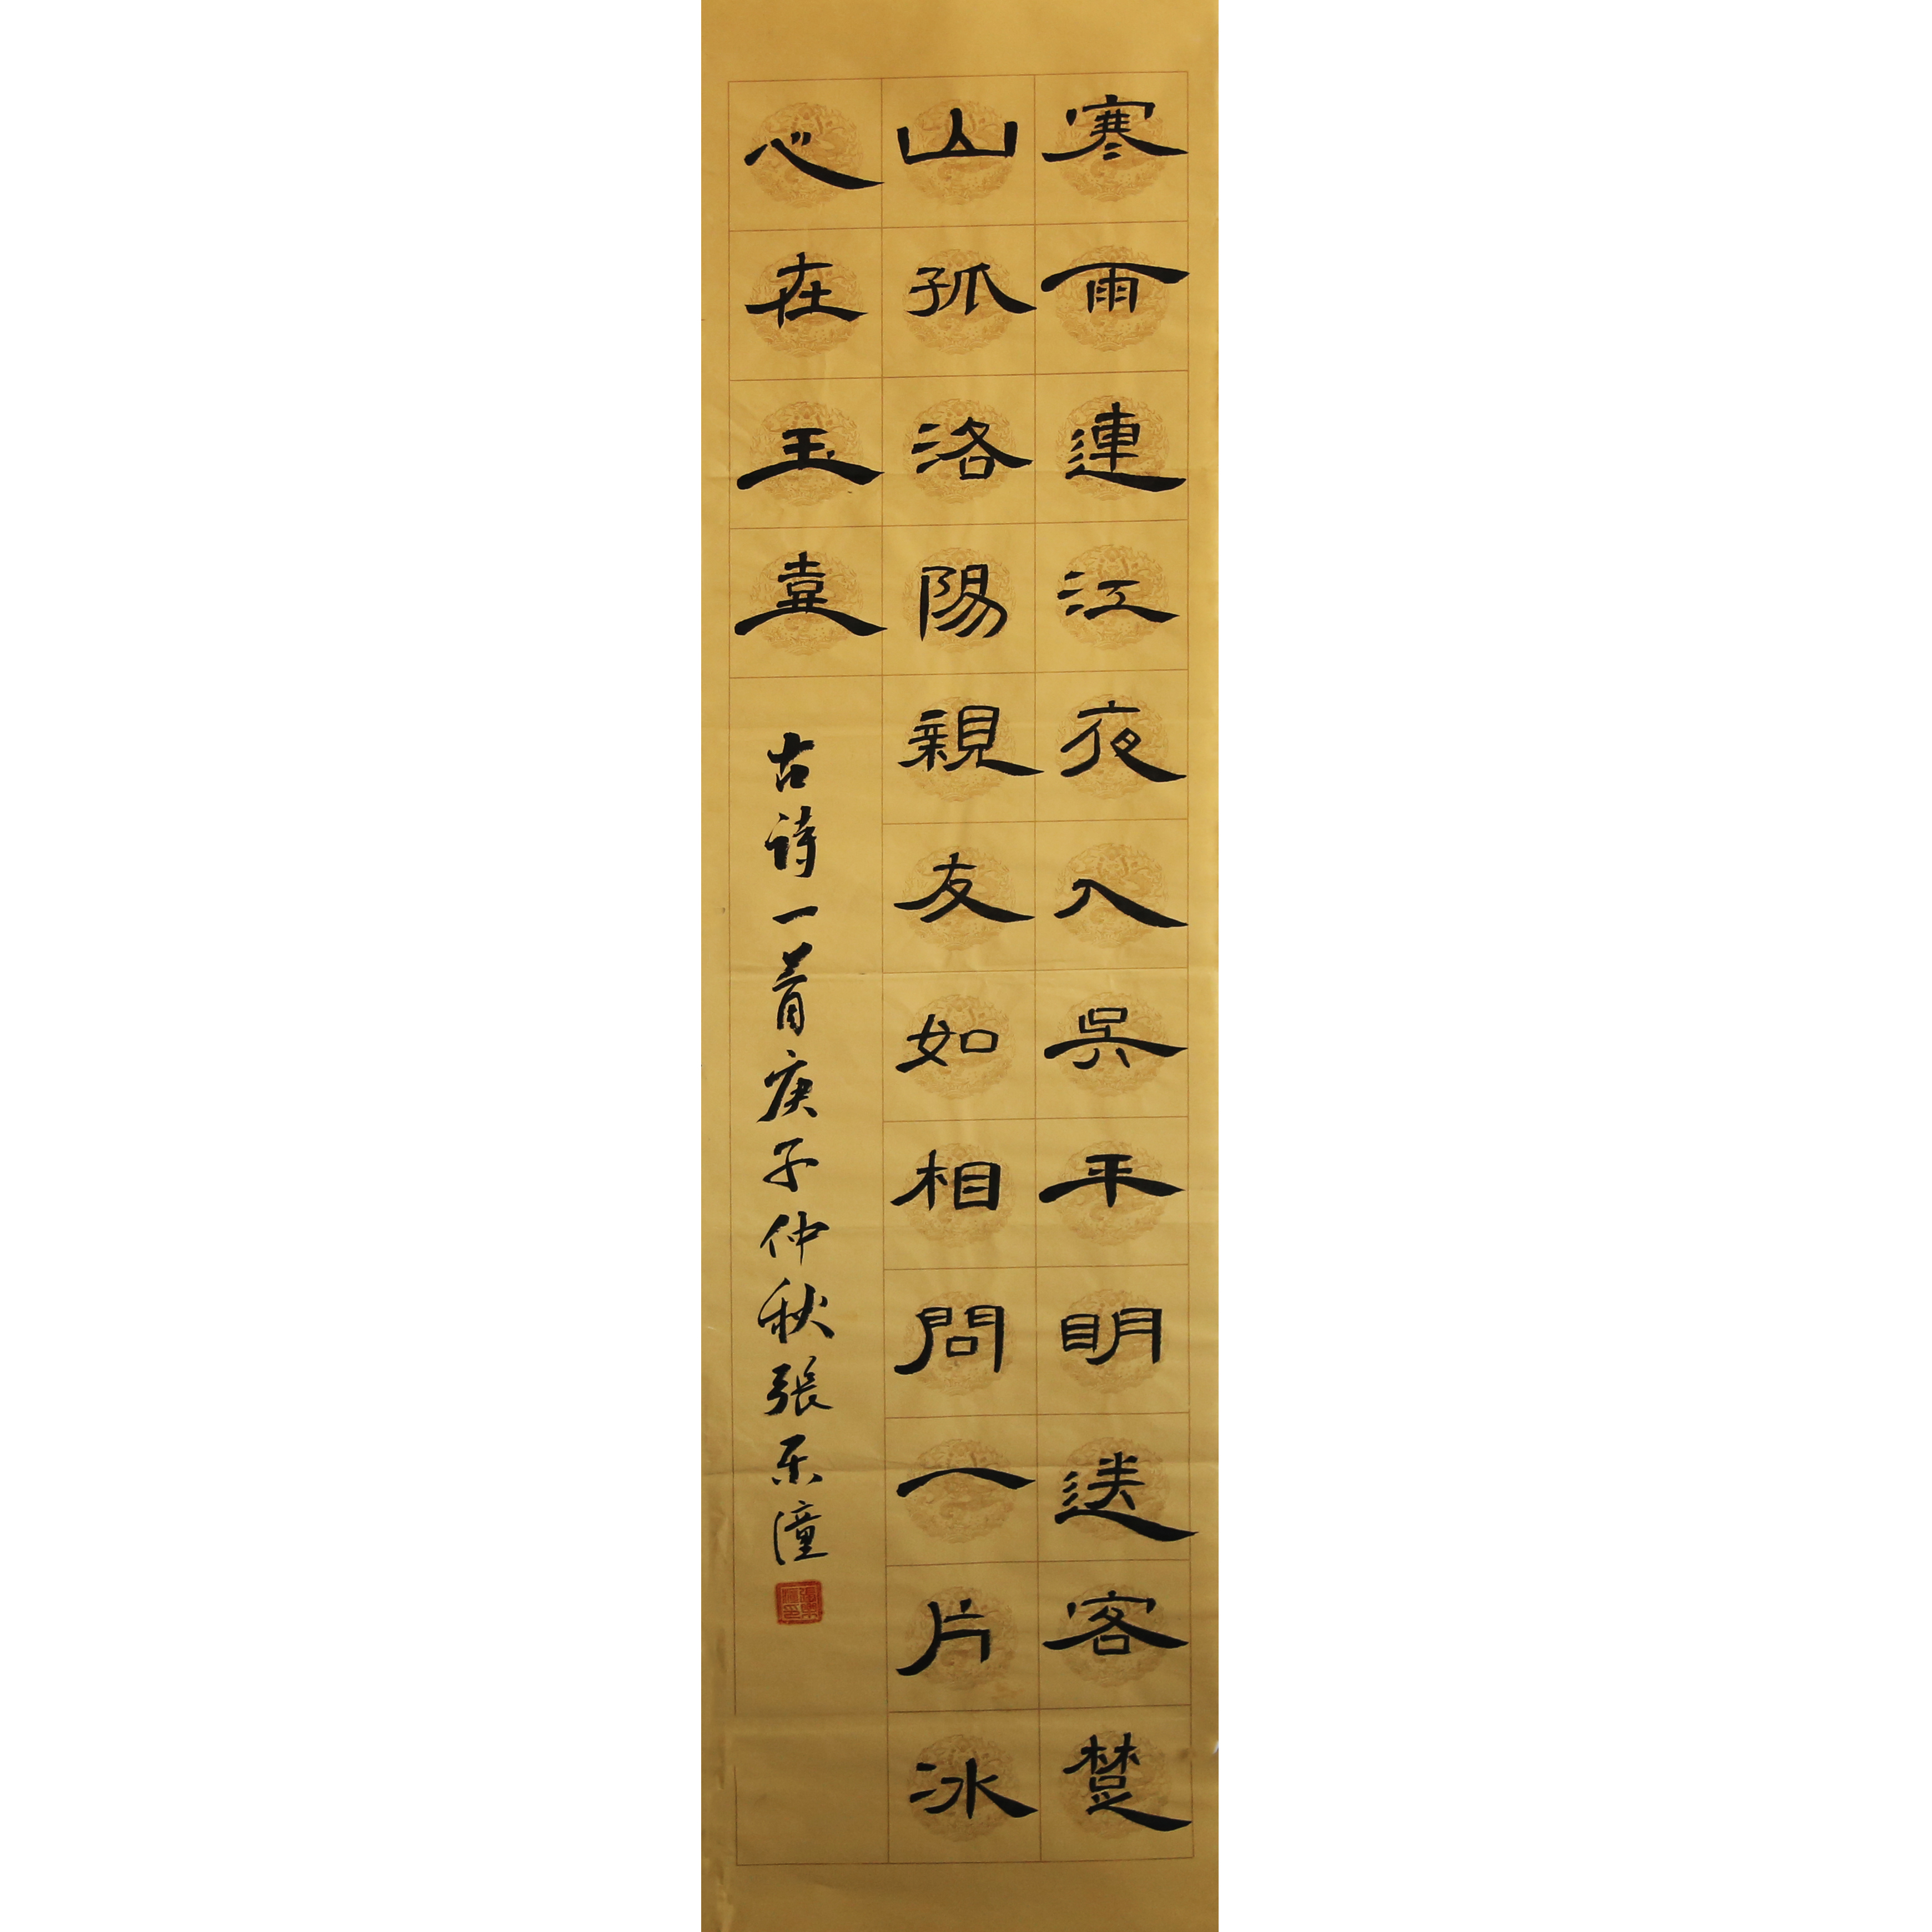 寒雨連江夜入吳平明送客楚
山孤洛陽親友如相問一片冰
心在玉壺
古詩一首庚子仲秋張樂潼